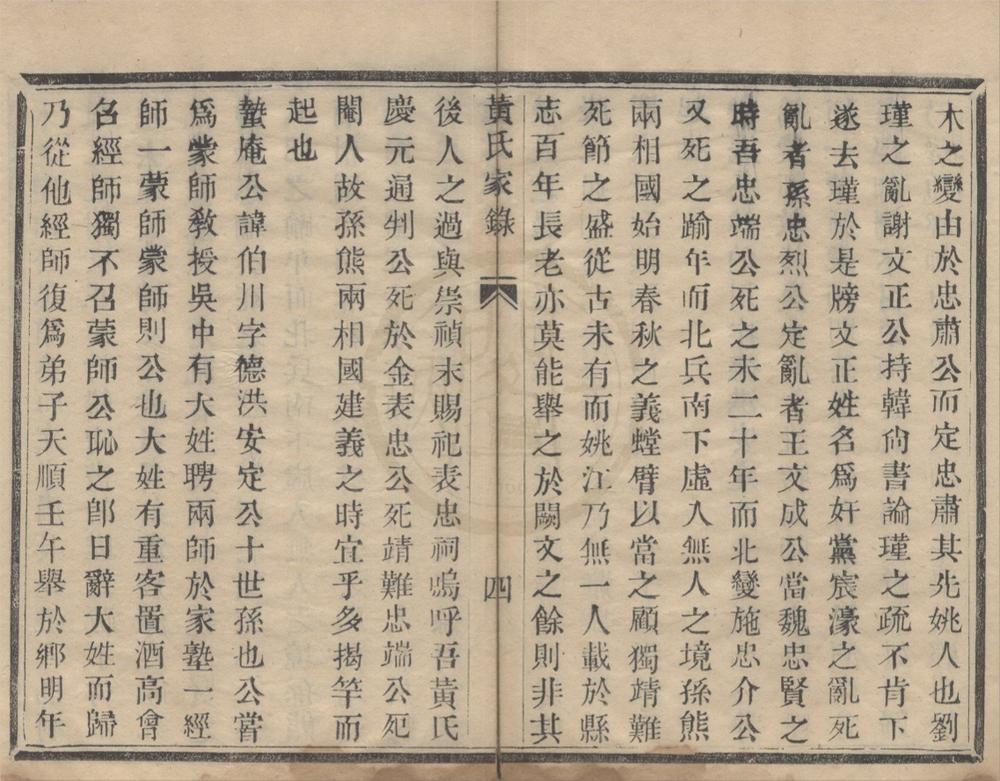 木之變由於忠肅公而定忠肅其先姚人也劉
瑾之亂謝文正公持韓尙書論瑾之疏不肯下
遂去瑾於是牓文正姓名爲奸黨宸濠之亂死
亂者孫忠烈公定亂者王文成公當魏忠賢之
時吾忠端公死之未二十年而北變施忠介公
又死之踰年而北兵南下虛人無人之境孫熊
兩相國始明春秋之義螳臂以當之顧獨靖難
死節之盛從古未有而姚江乃無一人載於縣
志百年長老亦莫能舉之於闕文之餘則非其
黃氏家錄 四
後人之過與崇禎末賜祀表忠祠嗚呼吾黃氏
慶元通判公死於金表忠公死靖難忠端公死
閹人故孫熊兩相國建義之時宜乎多揭竿而
起也
蟄庵公諱伯川字德洪安定公十世孫也公嘗
爲蒙師敎授吳中有大姓聘兩師於家塾一經
師一蒙師蒙師則公也大姓有重客置酒高會
名經師獨不召蒙師公恥之卽日辭大姓而歸
乃從他經師復爲弟子天順壬午舉於鄕明年